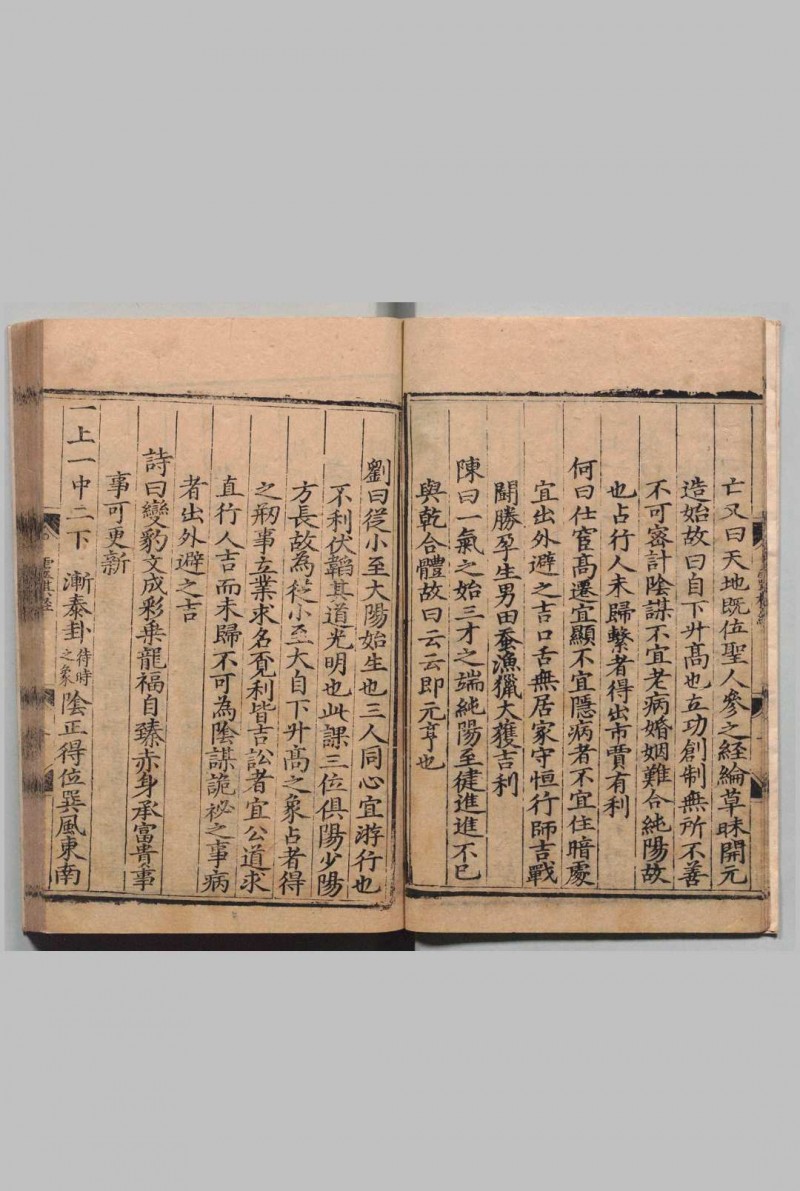 亡又曰天地既位聖人參之経綸草昧開元
造始故曰自下升髙也立功創制無所不善
不可宻計陰謀不宜老病婚姻難合純陽故
也占行人未歸繫者得出市賈有利
何曰仕宦髙遷宜顯不宜隠病者不宜住暗處
宜出外避之吉口舌無居家守恒行師吉戰
闘勝孕生男田蚕漁獵大獲吉利
陳曰一氣之始三才之端純陽至健進進不已
與乾合體故曰云云即元亨也
劉曰從小至大陽始生也三人同心宜游行也
不利伏韜其道光明也此課三位俱陽少陽
方長故為從小至大自下升髙之象占者得
之剏事立業求名覔利皆吉訟者宜公道求
直行人吉而未歸不可為陰謀詭祕之事病
者出外避之吉
詩曰變豹文成彩乗龍福自臻赤身承富貴事
事可更新
一上一中二下 漸泰卦 待時之象 陰正得位巽風東南